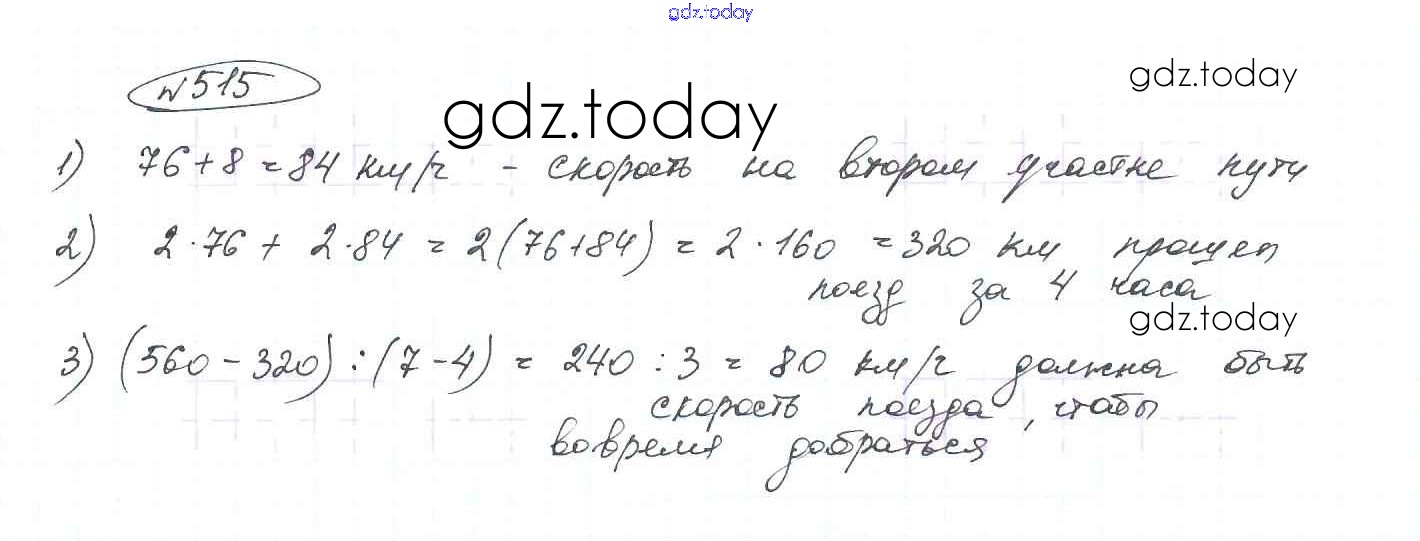 gdz.today
№515
gdz.today
gdz.today
1) 76+8=84 км/ч - скорость на втором участке пути
2) 2·76 + 2·84 = 2(76+84) = 2·160 = 320 км прошел
поезд за 4 часа
gdz.today
3) (560-320):(7-4) = 240:3 = 80 км/ч должна быть
скорость поезда, чтобы
вовремя добраться